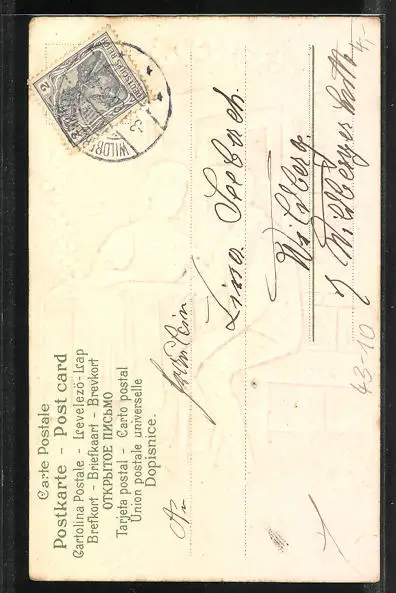 Carte Postale
Postkarte - Post card
Cartolina Postale - Levelező-Lap
Brefkort - Briefkaart - Brevkort
ОТКРЫТОЕ ПИСЬМО
Tarjeta postal - Carto postal
Union postale universelle
Dopisnice.
DEUTSCHES REICH
2
WILDB
An
Fräulein
Lina Seebach.
Wildberg.
43-10